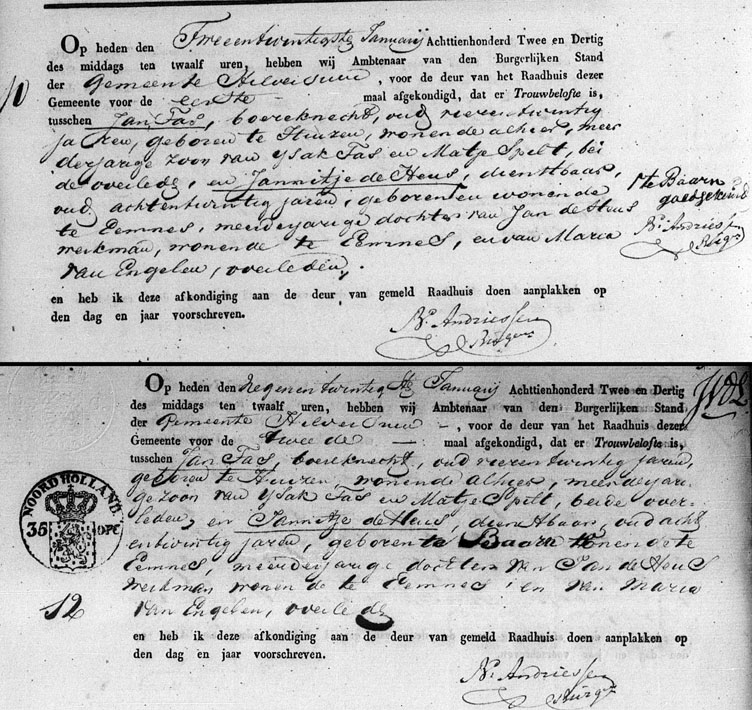 Op heden den Tweeentwintigste Januarij Achttienhonderd Twee en Dertig
des middags ten twaalf uren, hebben wij Ambtenaar van den Burgerlijken Stand
der Gemeente Hilversum, voor de deur van het Raadhuis dezer
Gemeente voor de eerste maal afgekondigd, dat er Trouwbelofte is,
tusschen Jan Fas, boereknecht, oud vierentwintig
jaren, geboren te Huizen, wonende alhier, meer
derjarige zoon van Ysak Fas en Matje Spilt, bei
de overleden, en Jannitje de Heus, dienstbaar,
oud achtentwintig jaren, geboren en wonende
te Eemnes, meerderjarige dochter van Jan de Heus
werkman, wonende te Eemnes, en van Maria
van Engelen, overleden,
te Baarn
goedgekeurd
Ns. Andriessen
Burgr
en heb ik deze afkondiging aan de deur van gemeld Raadhuis doen aanplakken op
den dag en jaar voorschreven.
Ns. Andriessen
Burgr
Op heden den Negenentwintigste Januarij Achttienhonderd Twee en Dertig
des middags ten twaalf uren, hebben wij Ambtenaar van den Burgerlijken Stand
der Gemeente Hilversum, voor de deur van het Raadhuis dezer
Gemeente voor de tweede maal afgekondigd, dat er Trouwbelofte is,
tusschen Jan Fas, boereknecht, oud vierentwintig jaren,
geboren te Huizen, wonende alhier, meerderjari
ge zoon van Ysak Fas en Matje Spilt, beide over
leden, en Jannitje de Heus, dienstbaar, oud acht
entwintig jaren, geboren te Baarn wonende te
Eemnes, meerderjarige dochter van Jan de Heus
werkman wonende te Eemnes en van Maria
van Engelen, overleden
NOORD HOLLAND
35 OPC
12
en heb ik deze afkondiging aan de deur van gemeld Raadhuis doen aanplakken op
den dag en jaar voorschreven.
Ns. Andriessen
Burgr